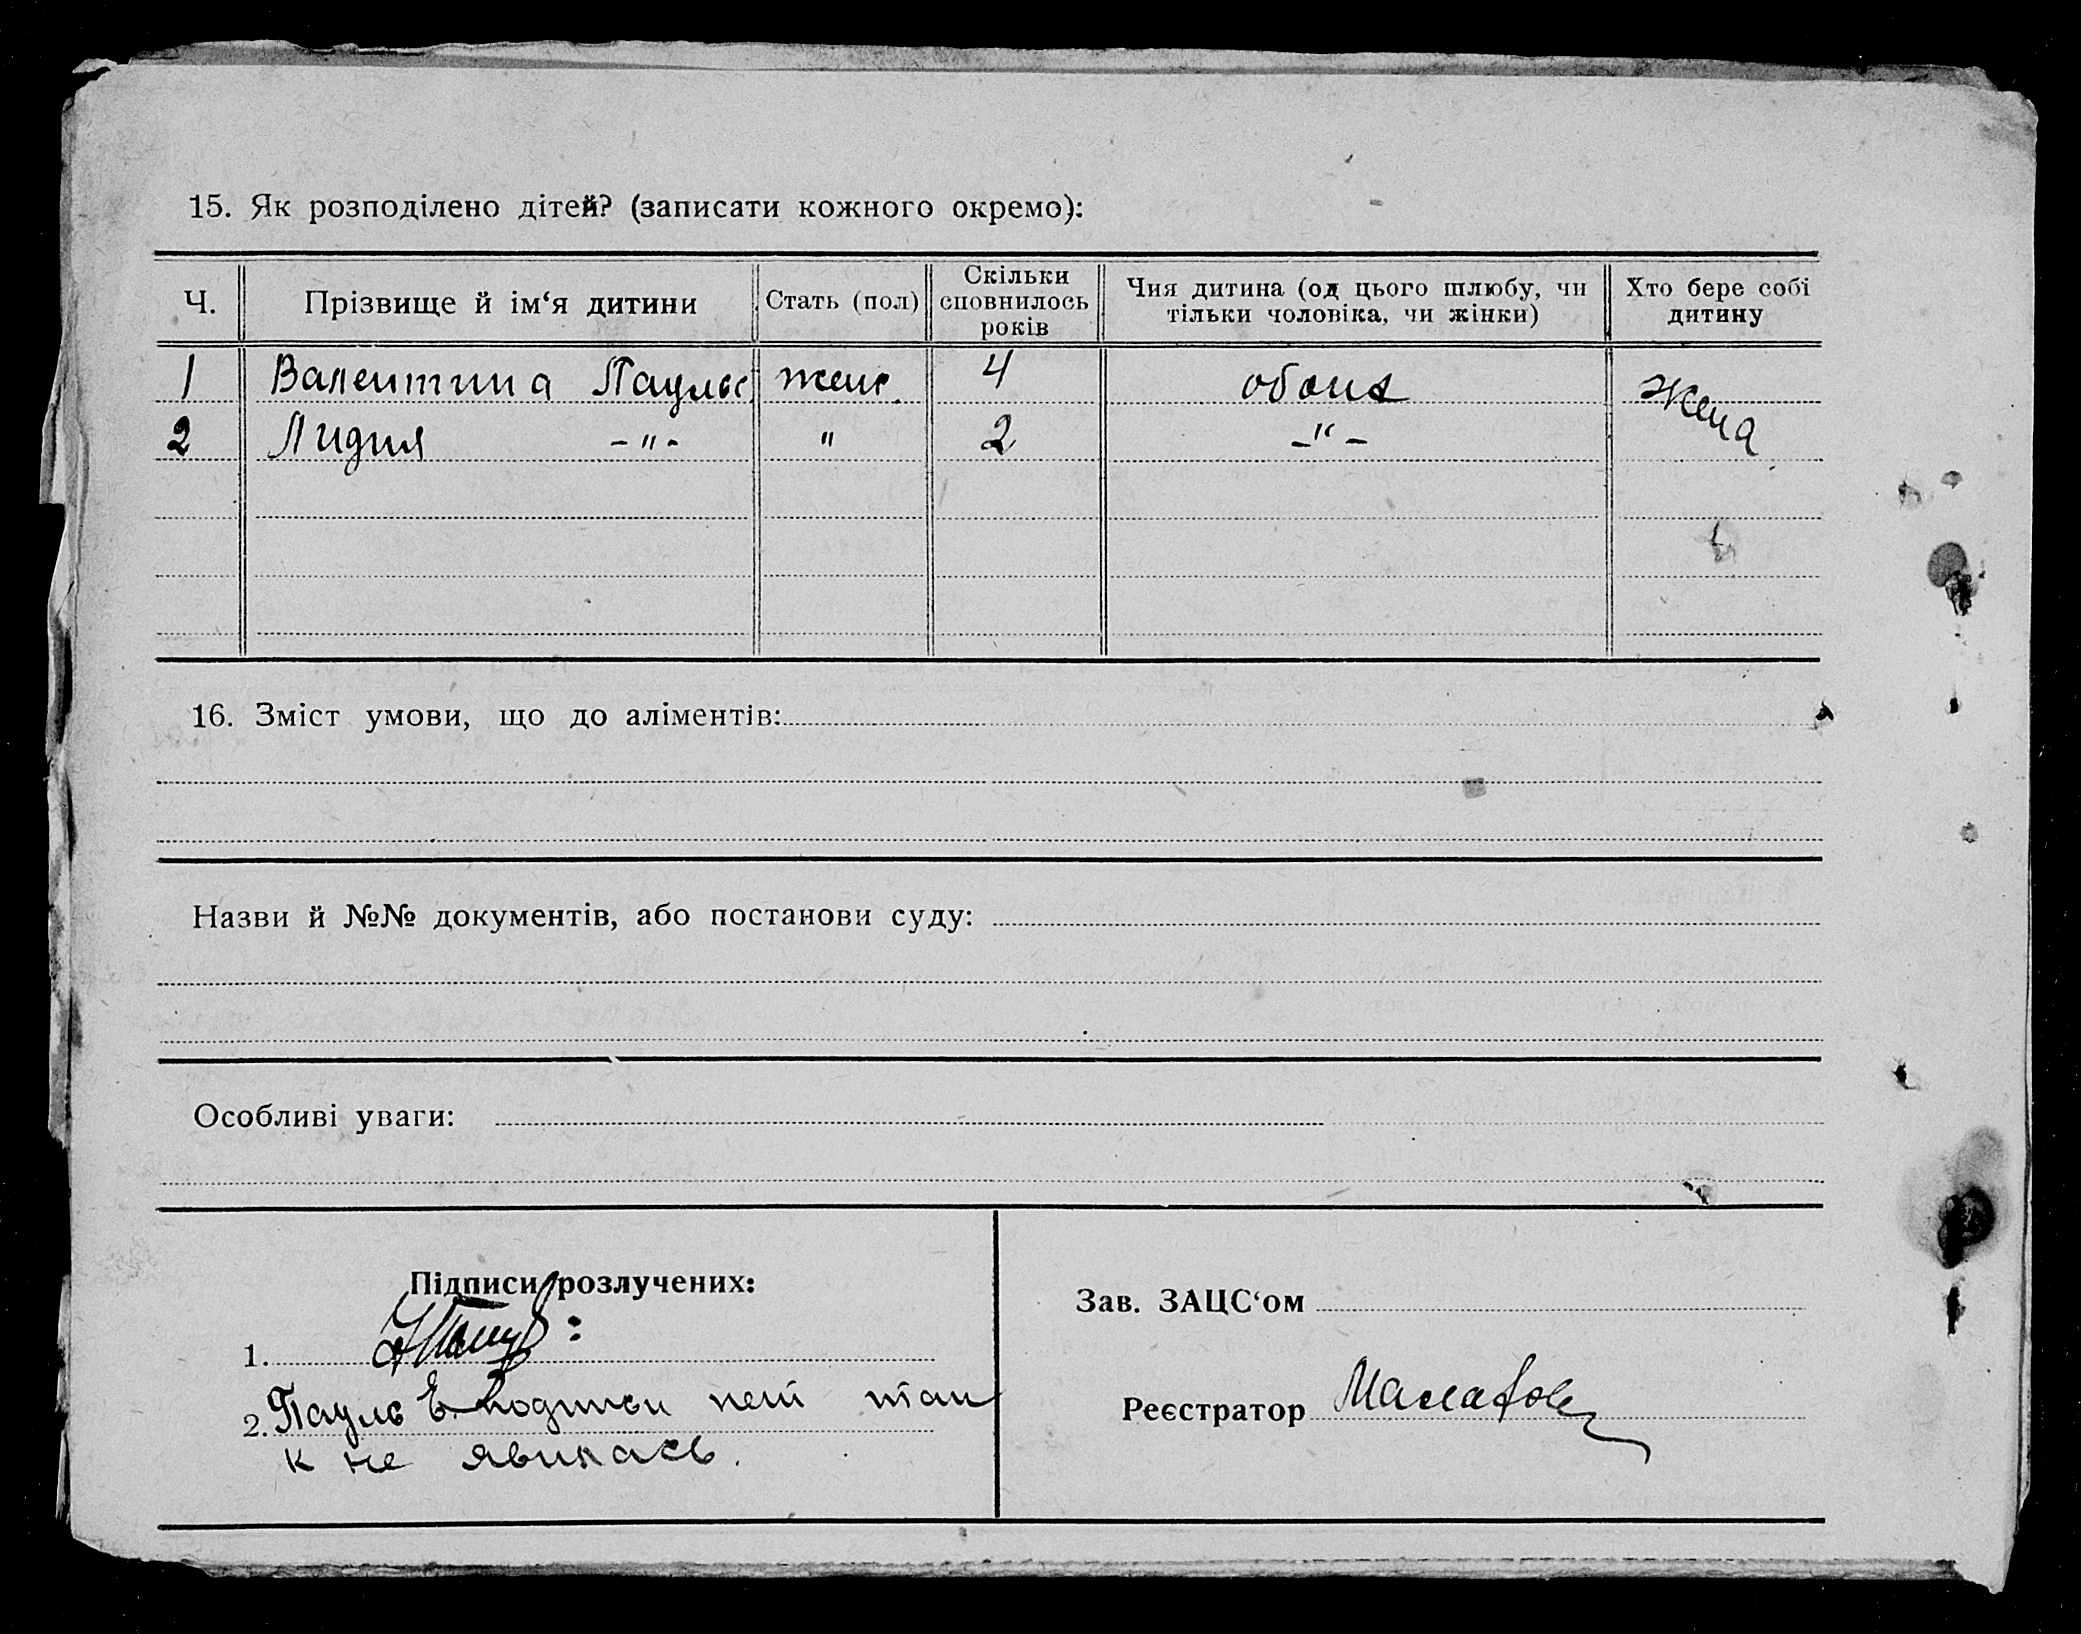 15. Як розподілено дітей? (записати кожного окремо):
Ч. Прізвище й ім‘я дитини Стать (пол) Скільки сповнилось років Чия дитина (од цього шлюбу, чи тільки чоловіка, чи жінки) Хто бере собі дитину
1 Валентина Пауль женс. 4 обоих жена
2 Лидия -"- " 2 -"-
16. Зміст умови, що до аліментів:
Назви й №№ документів, або постанови суду:
Особливі уваги:
Підписи розлучених:
1.
2. Пауль Е. подписи нет так
к не явилась.
Зав. ЗАЦС‘ом
Реєстратор